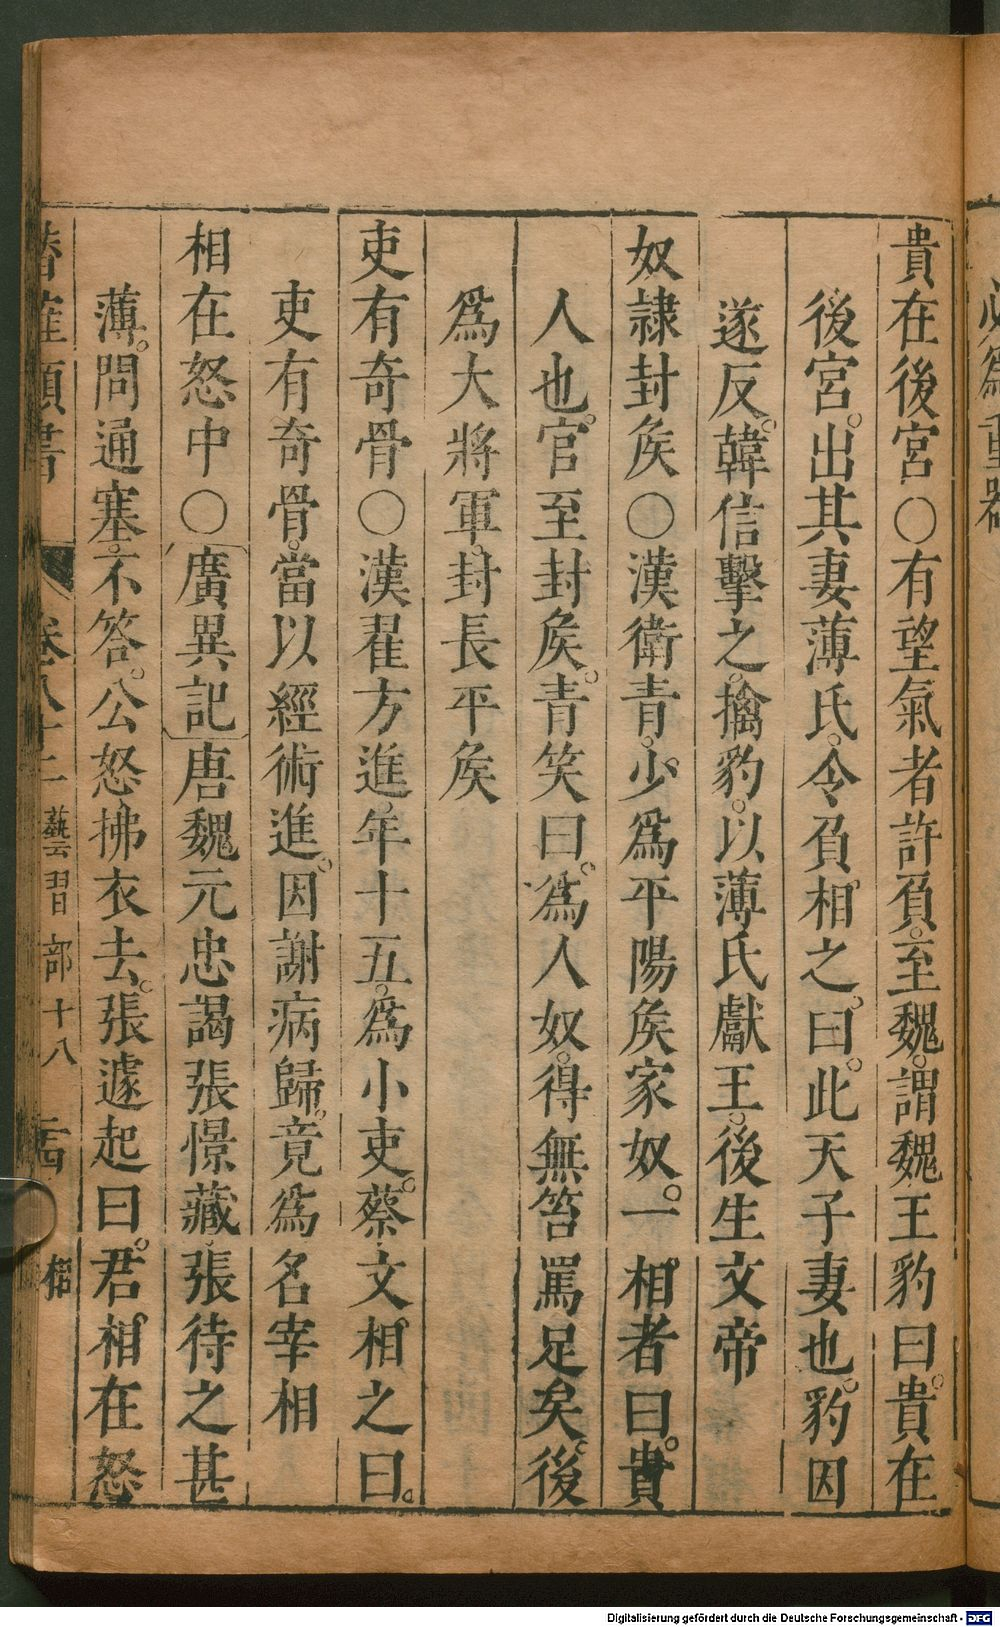 貴在後宮○有望氣者許負。至魏。謂魏王豹曰。貴在
後宮。出其妻薄氏。令負相之。曰。此天子妻也。豹因
遂反。韓信擊之。擒豹。以薄氏獻王。後生文帝
奴隷封矦○漢衛青。少爲平陽矦家奴。一相者曰。貴
人也。官至封矦。青笑曰。爲人奴。得無笞罵足矣。後
爲大將軍。封長平矦
吏有奇骨○漢翟方進。年十五。爲小吏。蔡文相之曰。
吏有奇骨。當以經術進。因謝病歸。竟爲名宰相
相在怒中○廣異記唐魏元忠謁張憬藏。張待之甚
薄。問通塞。不答。公怒拂衣去。張遽起曰。君相在怒
潛確類書 卷八十二 藝習部十八 相
Digitalisierung gefördert durch die Deutsche Forschungsgemeinschaft - DFG